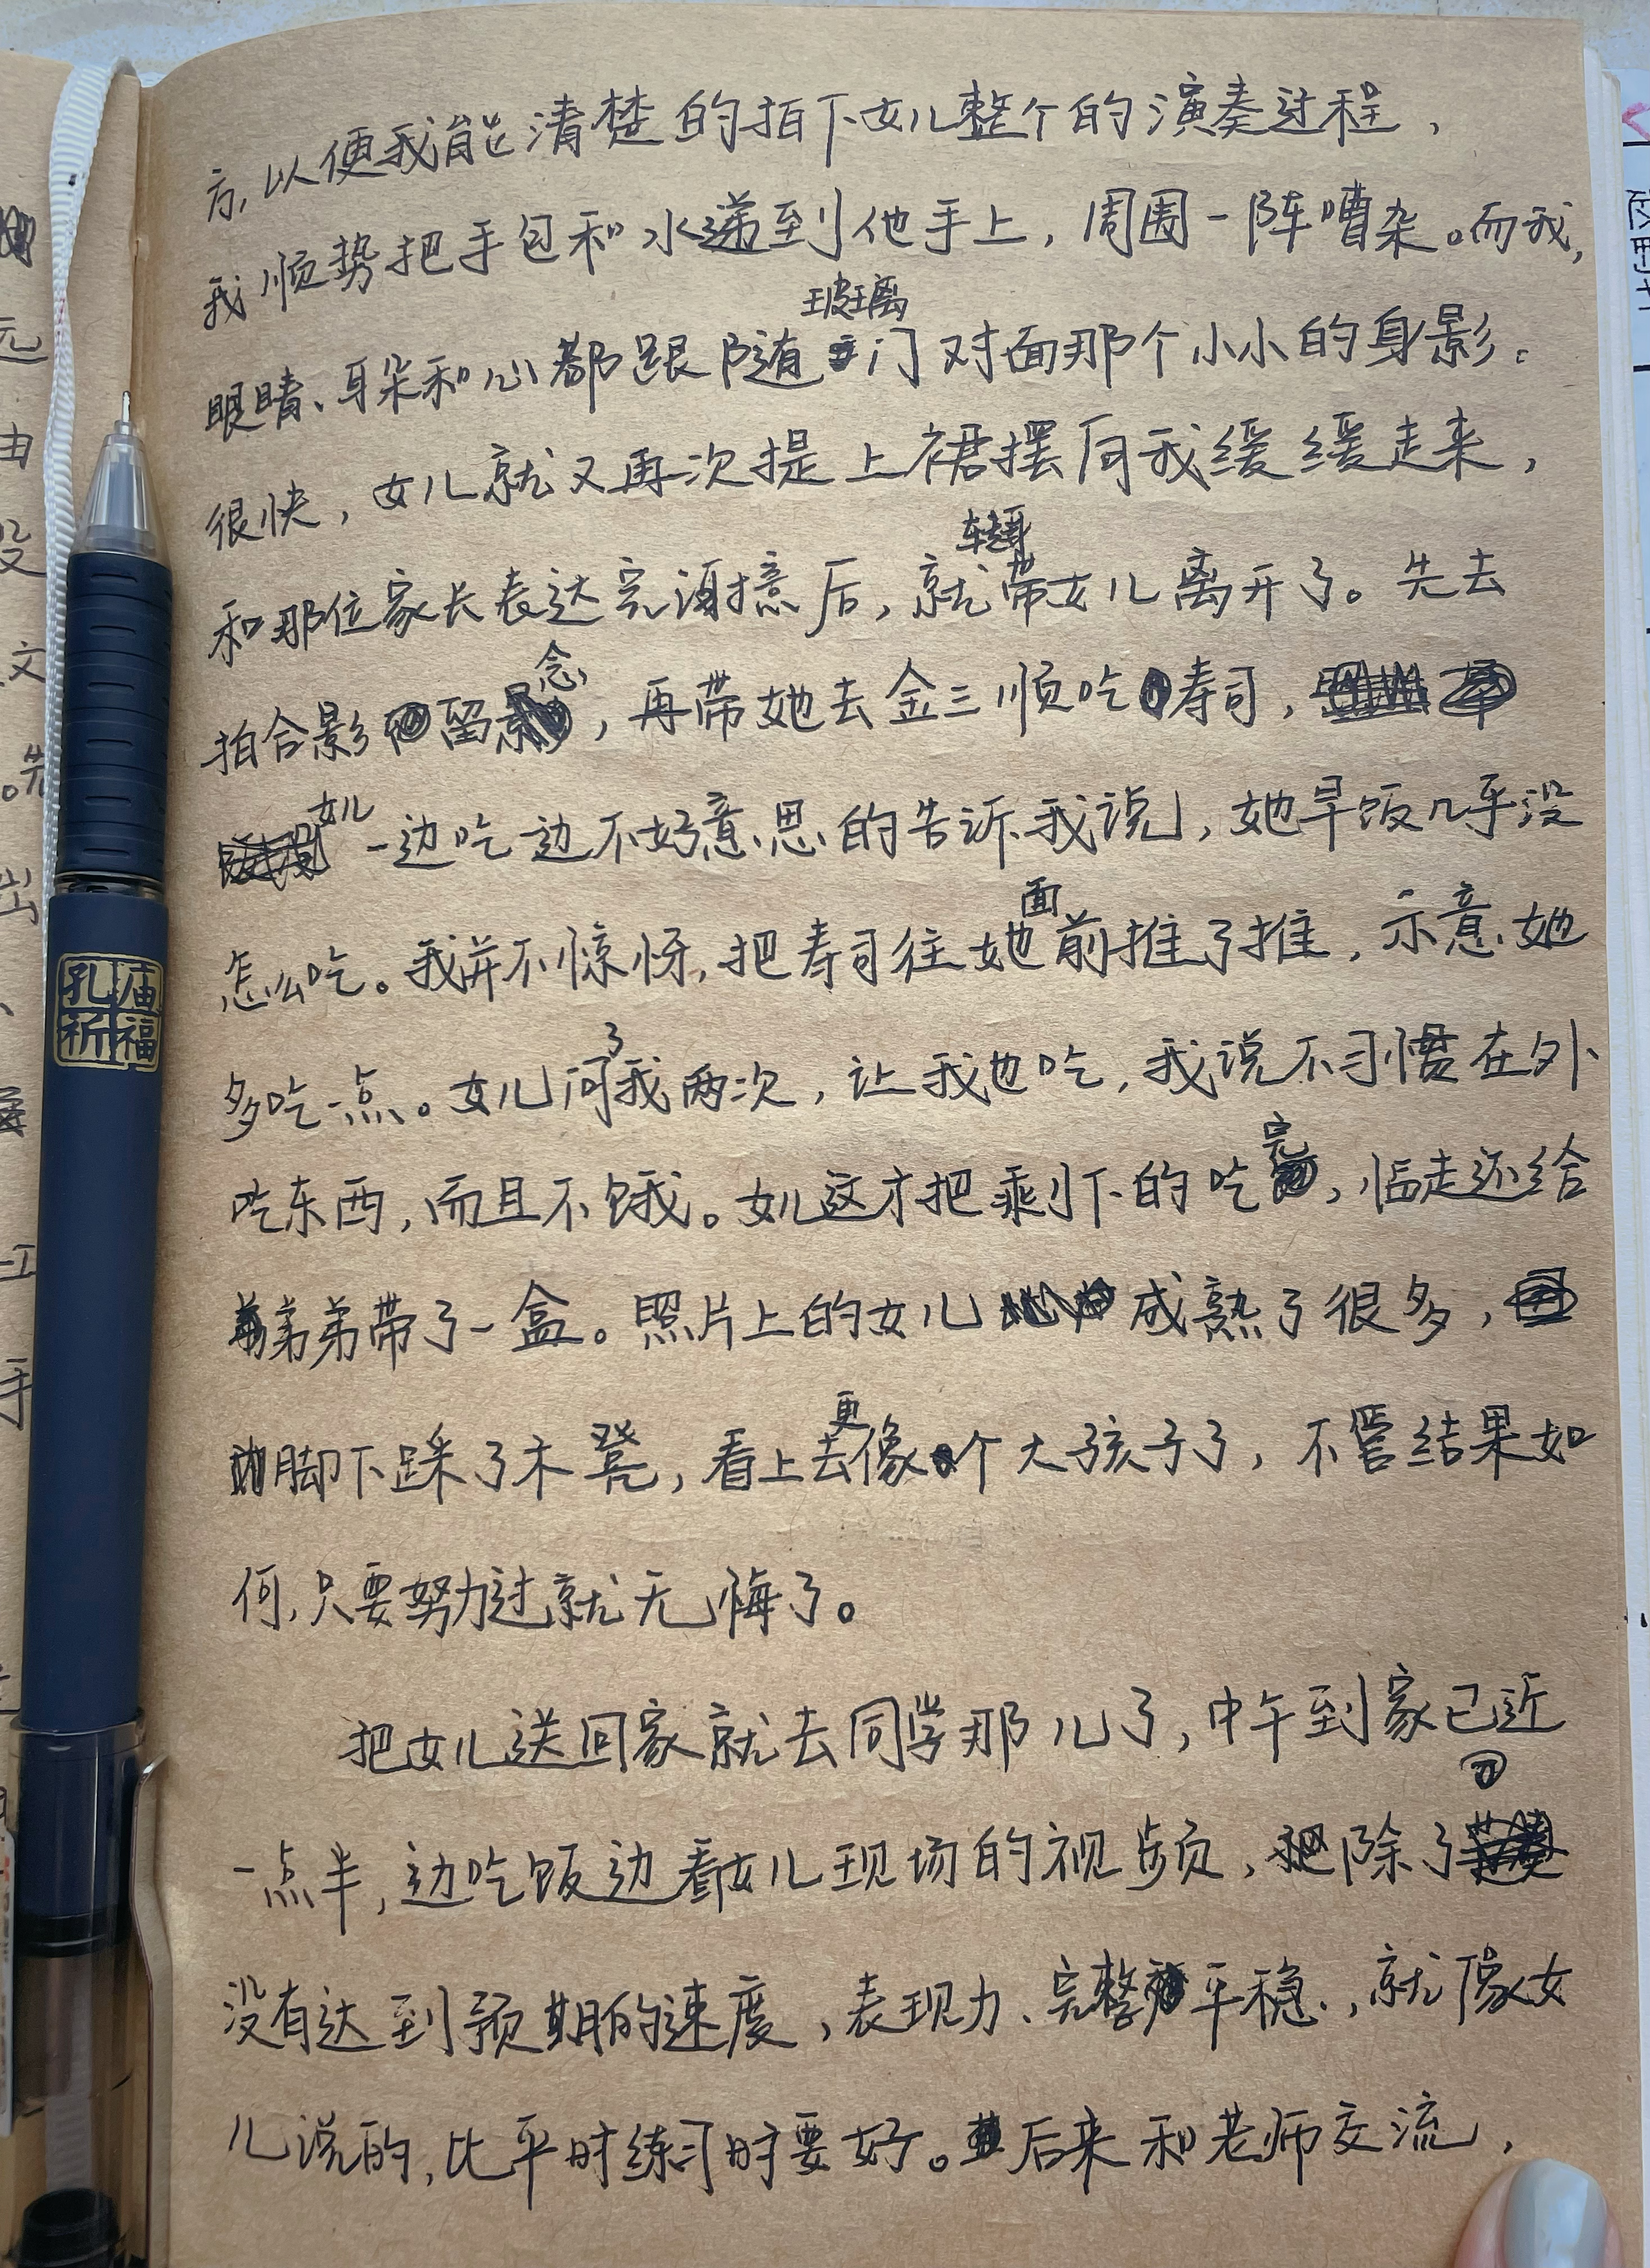 方,以便我能清楚的拍下女儿整个的演奏过程，
我顺势把手包和水递到他手上，周围一阵嘈杂。而我，
眼睛、耳朵和心都跟随玻璃门对面那个小小的身影。
很快，女儿就又再次提上裙摆向我缓缓走来，
和那位家长表达完谢意后，就转身带女儿离开了。先去
拍合影留念，再带她去金三顺吃寿司，
女儿一边吃一边不好意思的告诉我说，她早饭几乎没
怎么吃。我并不惊讶，把寿司往她面前推了推，示意她
多吃一点。女儿问了我两次，让我也吃，我说不习惯在外
吃东西，而且不饿。女儿这才把剩下的吃完，临走还给
弟弟带了一盒。照片上的女儿成熟了很多，
脚下踩了木凳，看上去更像个大孩子了，不管结果如
何,只要努力过就无悔了。
把女儿送回家就去同学那儿了，中午到家已近
一点半，边吃饭边看女儿现场的视频，除了
没有达到预期的速度，表现力、完整平稳，就像女
儿说的，比平时练习时要好。后来和老师交流，
孔庙
祈福